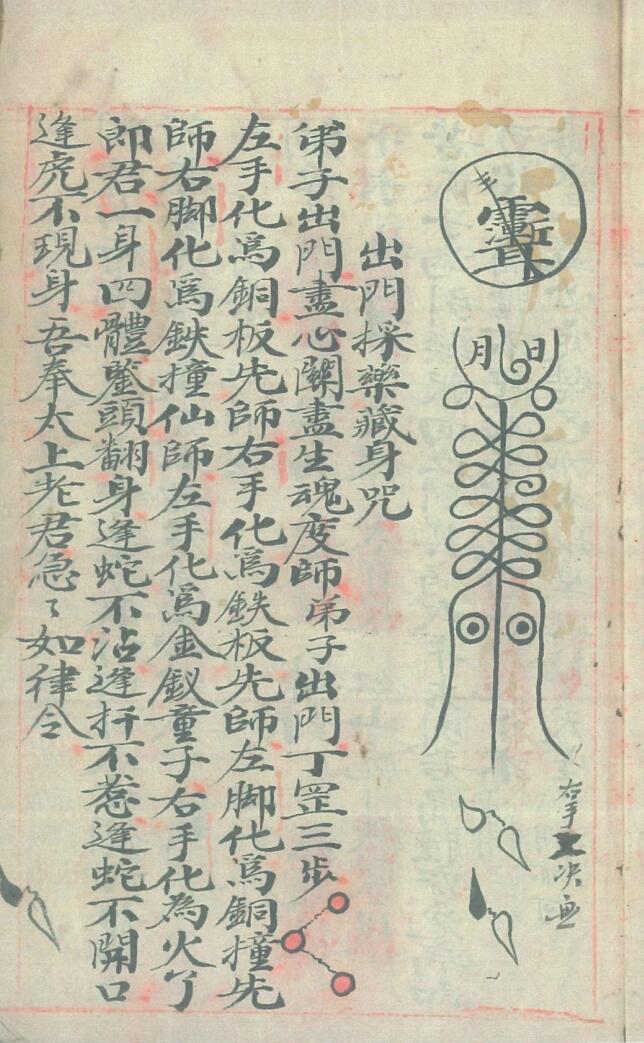 日 月
右手 决画
出門採藥藏身咒
弟子出門盡心關盡生魂度師弟子出門丁罡三步
左手化爲銅板先師右手化爲鉄板先師左脚化爲銅撞先
師右脚化爲鉄撞仙師左手化爲金釵童子右手化為火丫
郎君一身四體鑒頭翻身逢蛇不沾逢扦不惹逢蛇不開口
逢虎不現身吾奉太上老君急〻如律令